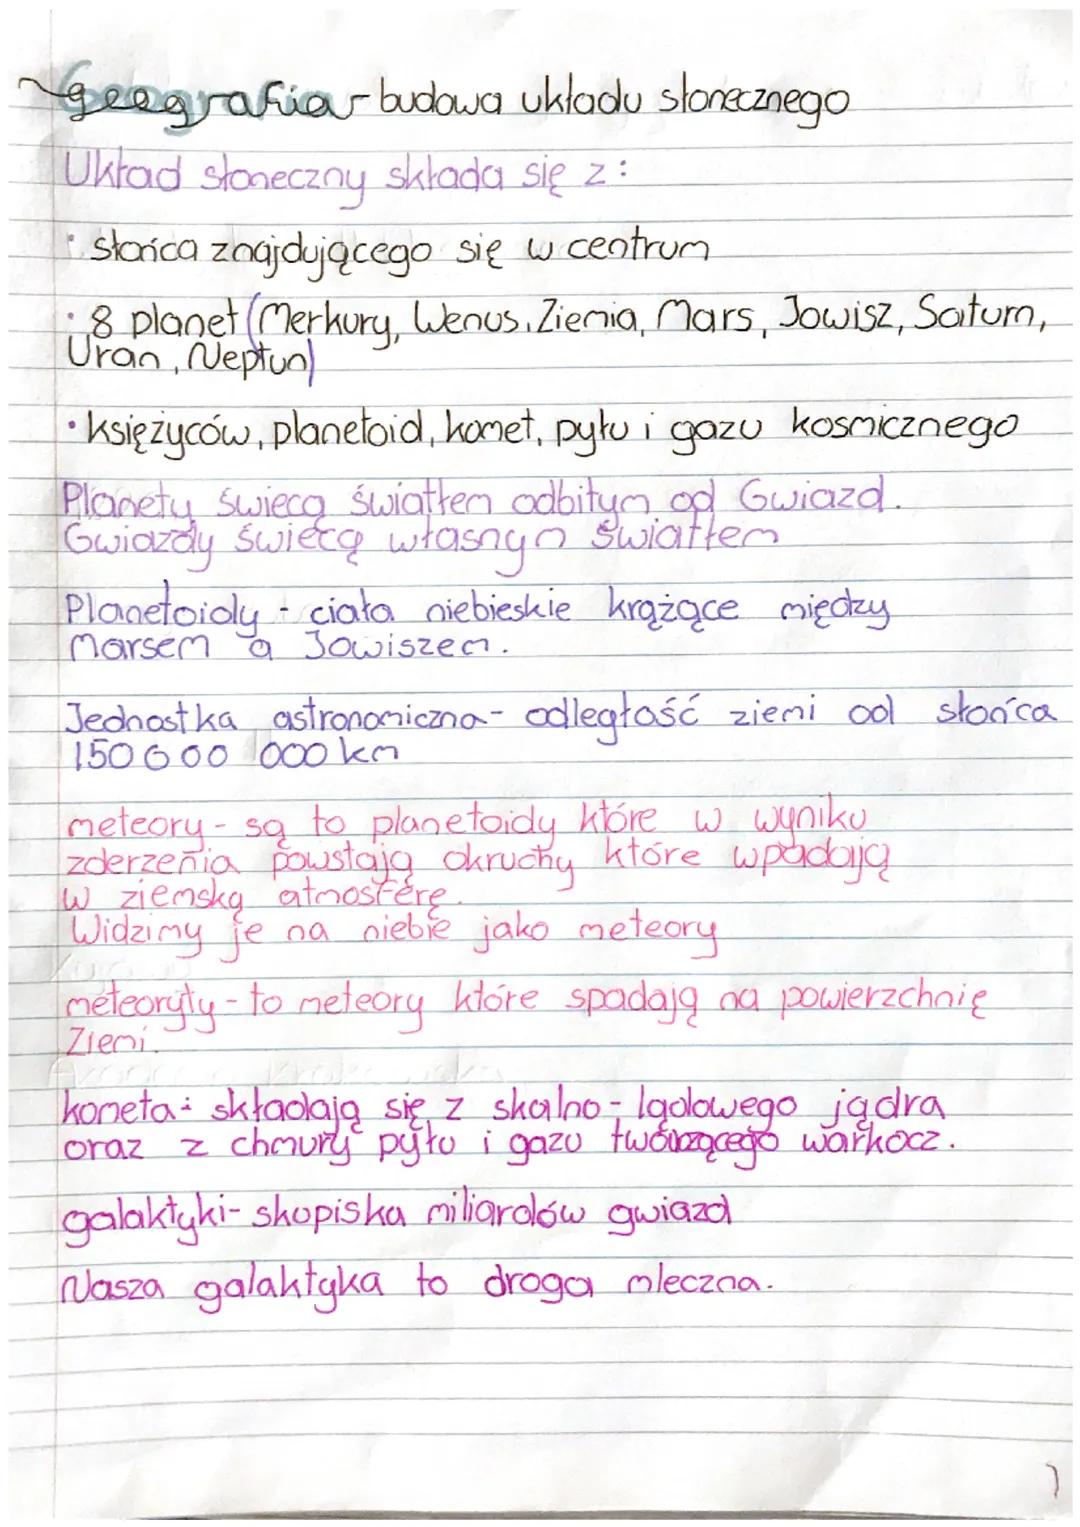 geografia - budowa układu słonecznego
Układ słoneczny składa się z:
· słońca znajdującego się w centrum
· 8 planet (Merkury, Wenus, Ziemia, Mars, Jowisz, Saturn,
Uran, Neptun)
· księżyców, planetoid, komet, pyłu i gazu kosmicznego
Planety świecą światłem odbitym od Gwiazd.
Gwiazdy świecą własnym światłem
Planetoidy - ciała niebieskie krążące między
Marsem a Jowiszem.
Jednostka astronomiczna - odległość ziemi od słońca
150 000 000 km
meteory - są to planetoidy które w wyniku
zderzenia powstają okruchy które wpadają
w ziemską atmosferę.
Widzimy je na niebie jako meteory
meteoryty - to meteory które spadają na powierzchnię
Ziemi.
kometa - składają się z skalno - lądowego jądra
oraz z chmury pyłu i gazu tworzącego warkocz.
galaktyki - skupiska miliardów gwiazd
Nasza galaktyka to droga mleczna.